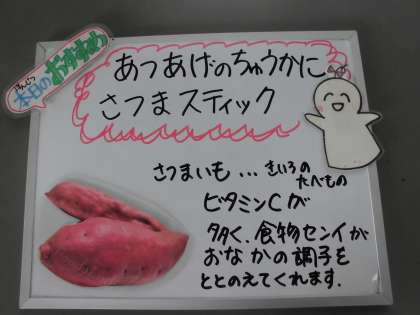 ほんじつ
本日の
おすすめ
あつあげのちゅうかに
さつまスティック
さつまいも…きいろの
たべもの
ビタミンCが
多く、食物センイが
おなかの調子を
ととのえてくれます.